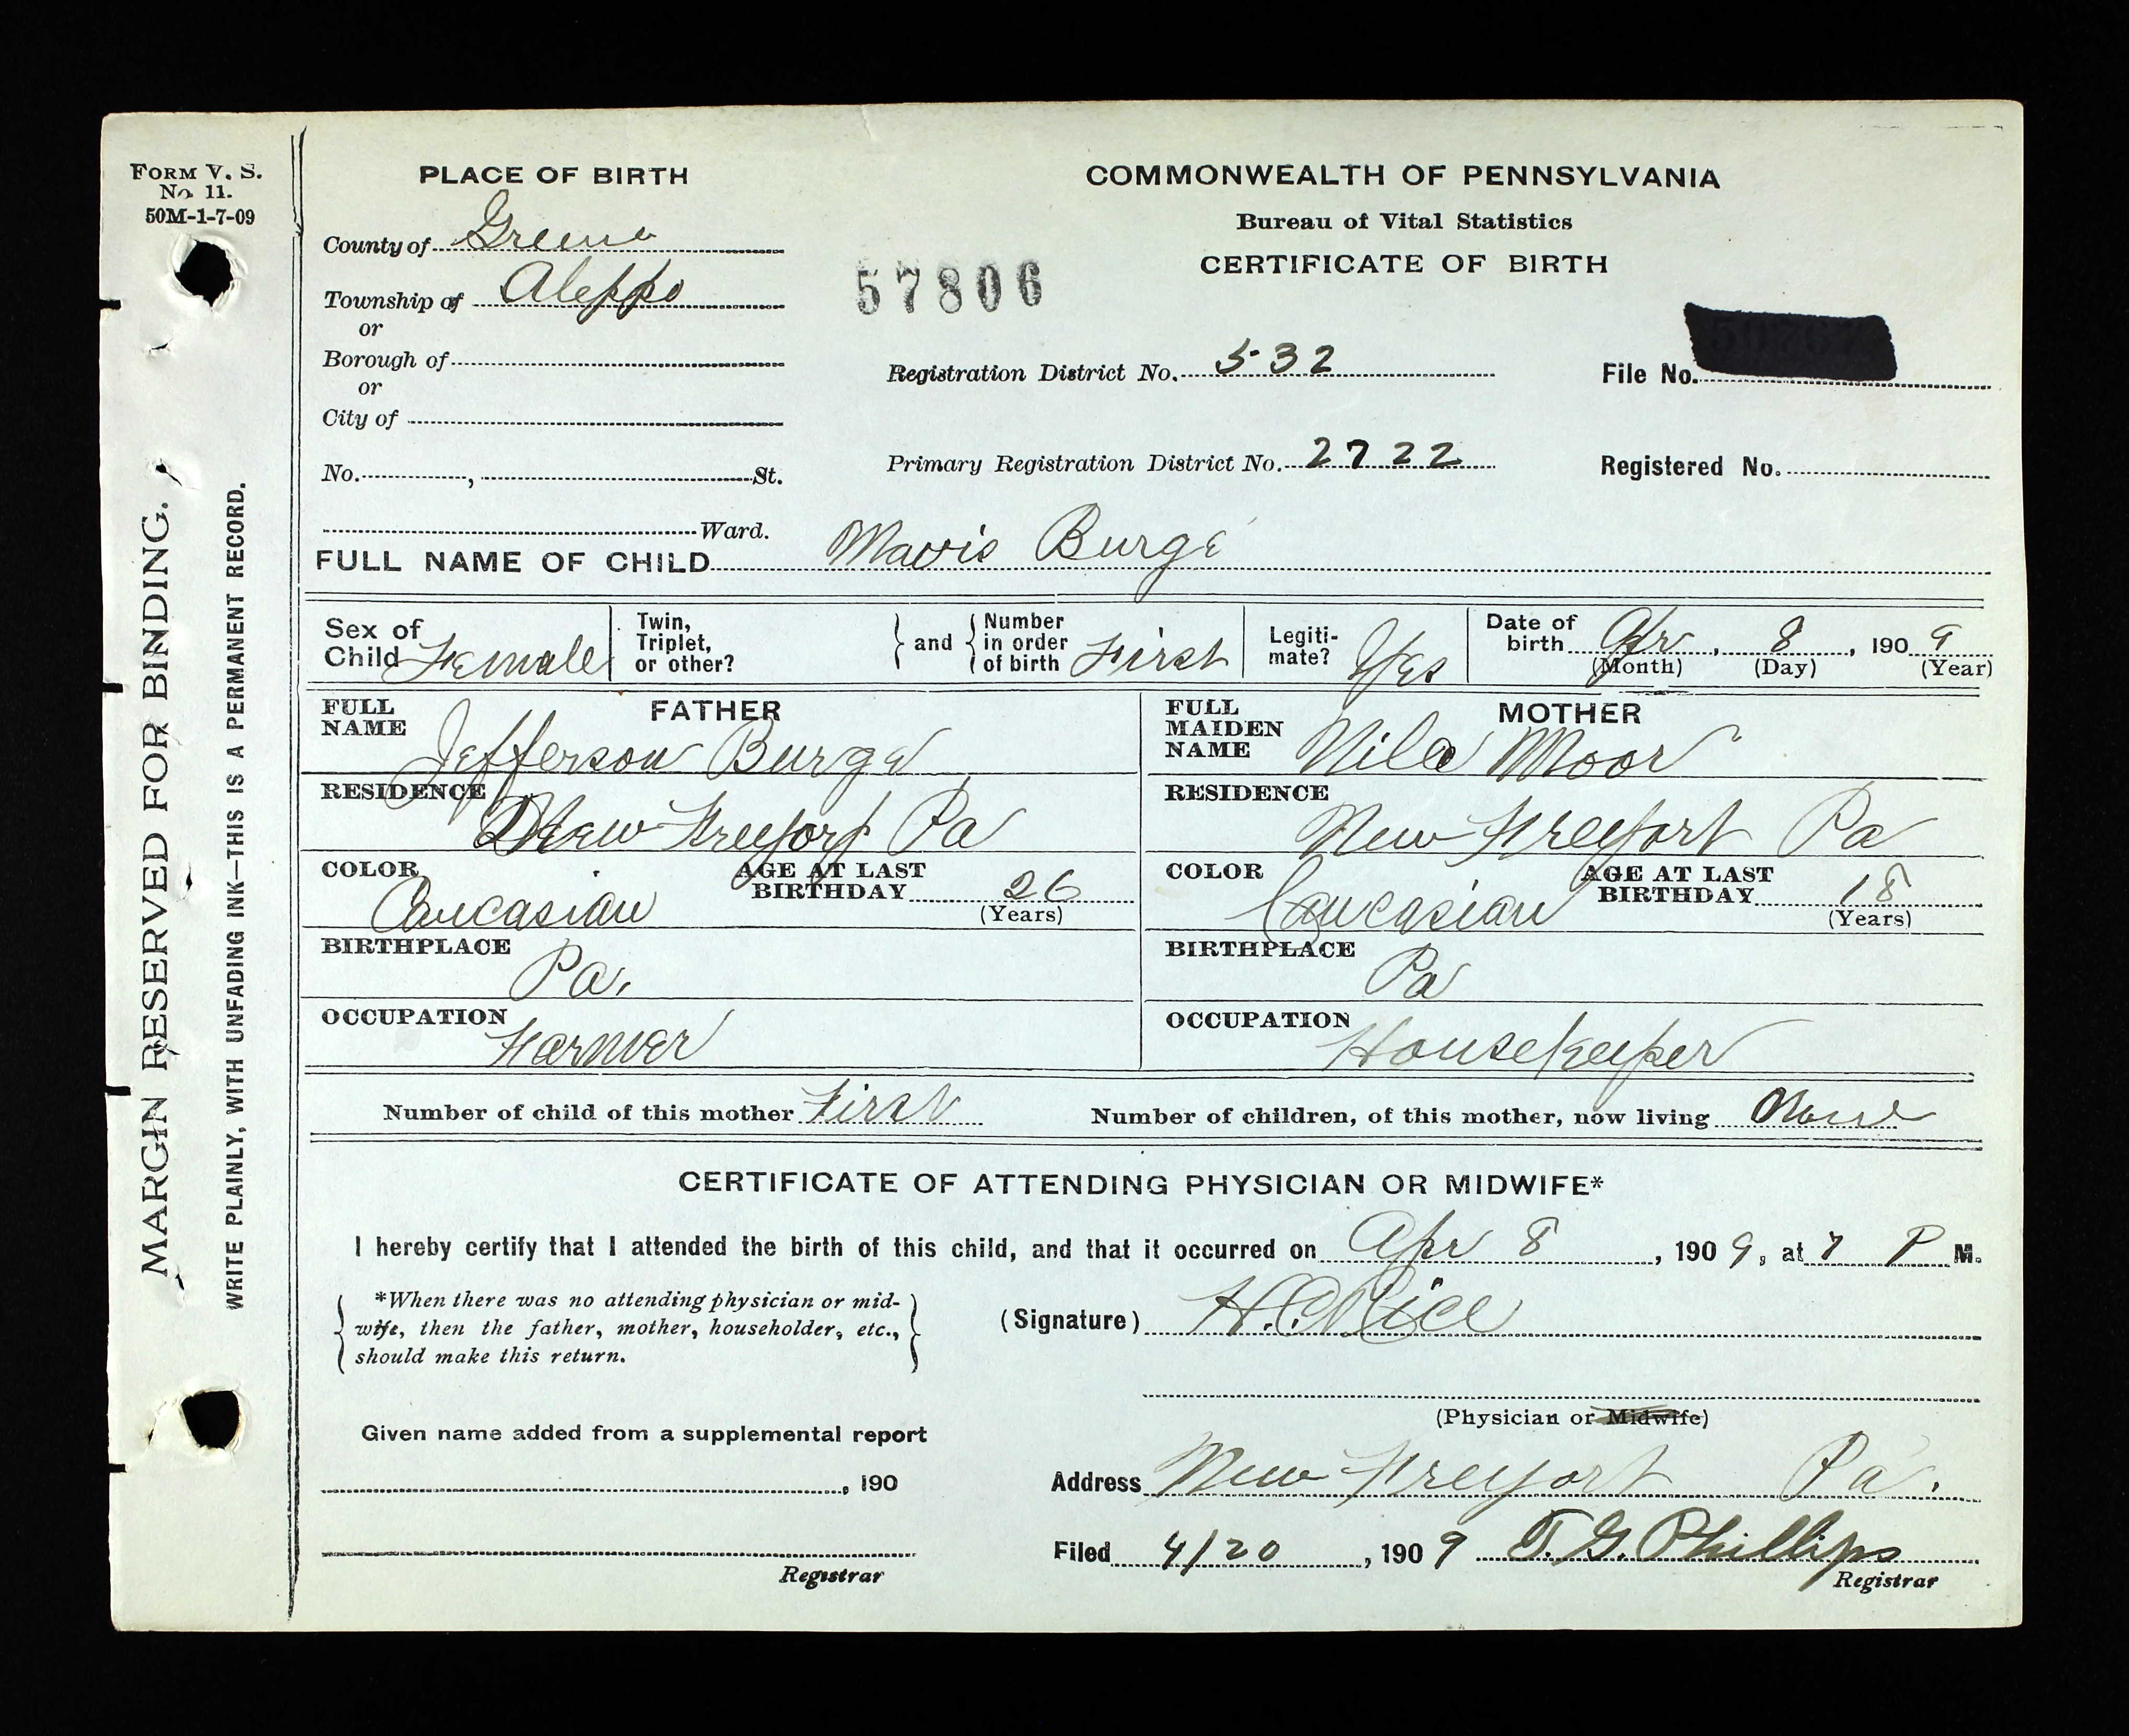 FORM V. S.
No. 11.
50M-1-7-09
MARGIN RESERVED FOR BINDING.
WRITE PLAINLY, WITH UNFADING INK—THIS IS A PERMANENT RECORD.
PLACE OF BIRTH
County of Greene
Township of Aleppo
or
Borough of
or
City of
No. , St.
Ward.
57806
COMMONWEALTH OF PENNSYLVANIA
Bureau of Vital Statistics
CERTIFICATE OF BIRTH
Registration District No. 532
File No.
Primary Registration District No. 2722
Registered No.
FULL NAME OF CHILD Mavis Burge
Sex of Child Female
Twin, Triplet, or other?
and
Number in order of birth First
Legiti-mate? Yes
Date of birth Apr , 8 , 1909
(Month) (Day) (Year)
FATHER
FULL NAME Jefferson Burge
RESIDENCE New Freeport Pa
COLOR Caucasian
AGE AT LAST BIRTHDAY 26
(Years)
BIRTHPLACE Pa.
OCCUPATION Farmer
MOTHER
FULL MAIDEN NAME Nila Moor
RESIDENCE New Freeport Pa
COLOR Caucasian
AGE AT LAST BIRTHDAY 18
(Years)
BIRTHPLACE Pa
OCCUPATION Housekeeper
Number of child of this mother First
Number of children, of this mother, now living
CERTIFICATE OF ATTENDING PHYSICIAN OR MIDWIFE*
I hereby certify that I attended the birth of this child, and that it occurred on Apr 8 , 1909, at 7 P M.
*When there was no attending physician or mid-
wife, then the father, mother, householder, etc.,
should make this return.
(Signature) Rice
(Physician or Midwife)
Given name added from a supplemental report
, 190
Registrar
Address New Freeport Pa.
Filed 4/20 , 1909 T. G. Phillips
Registrar